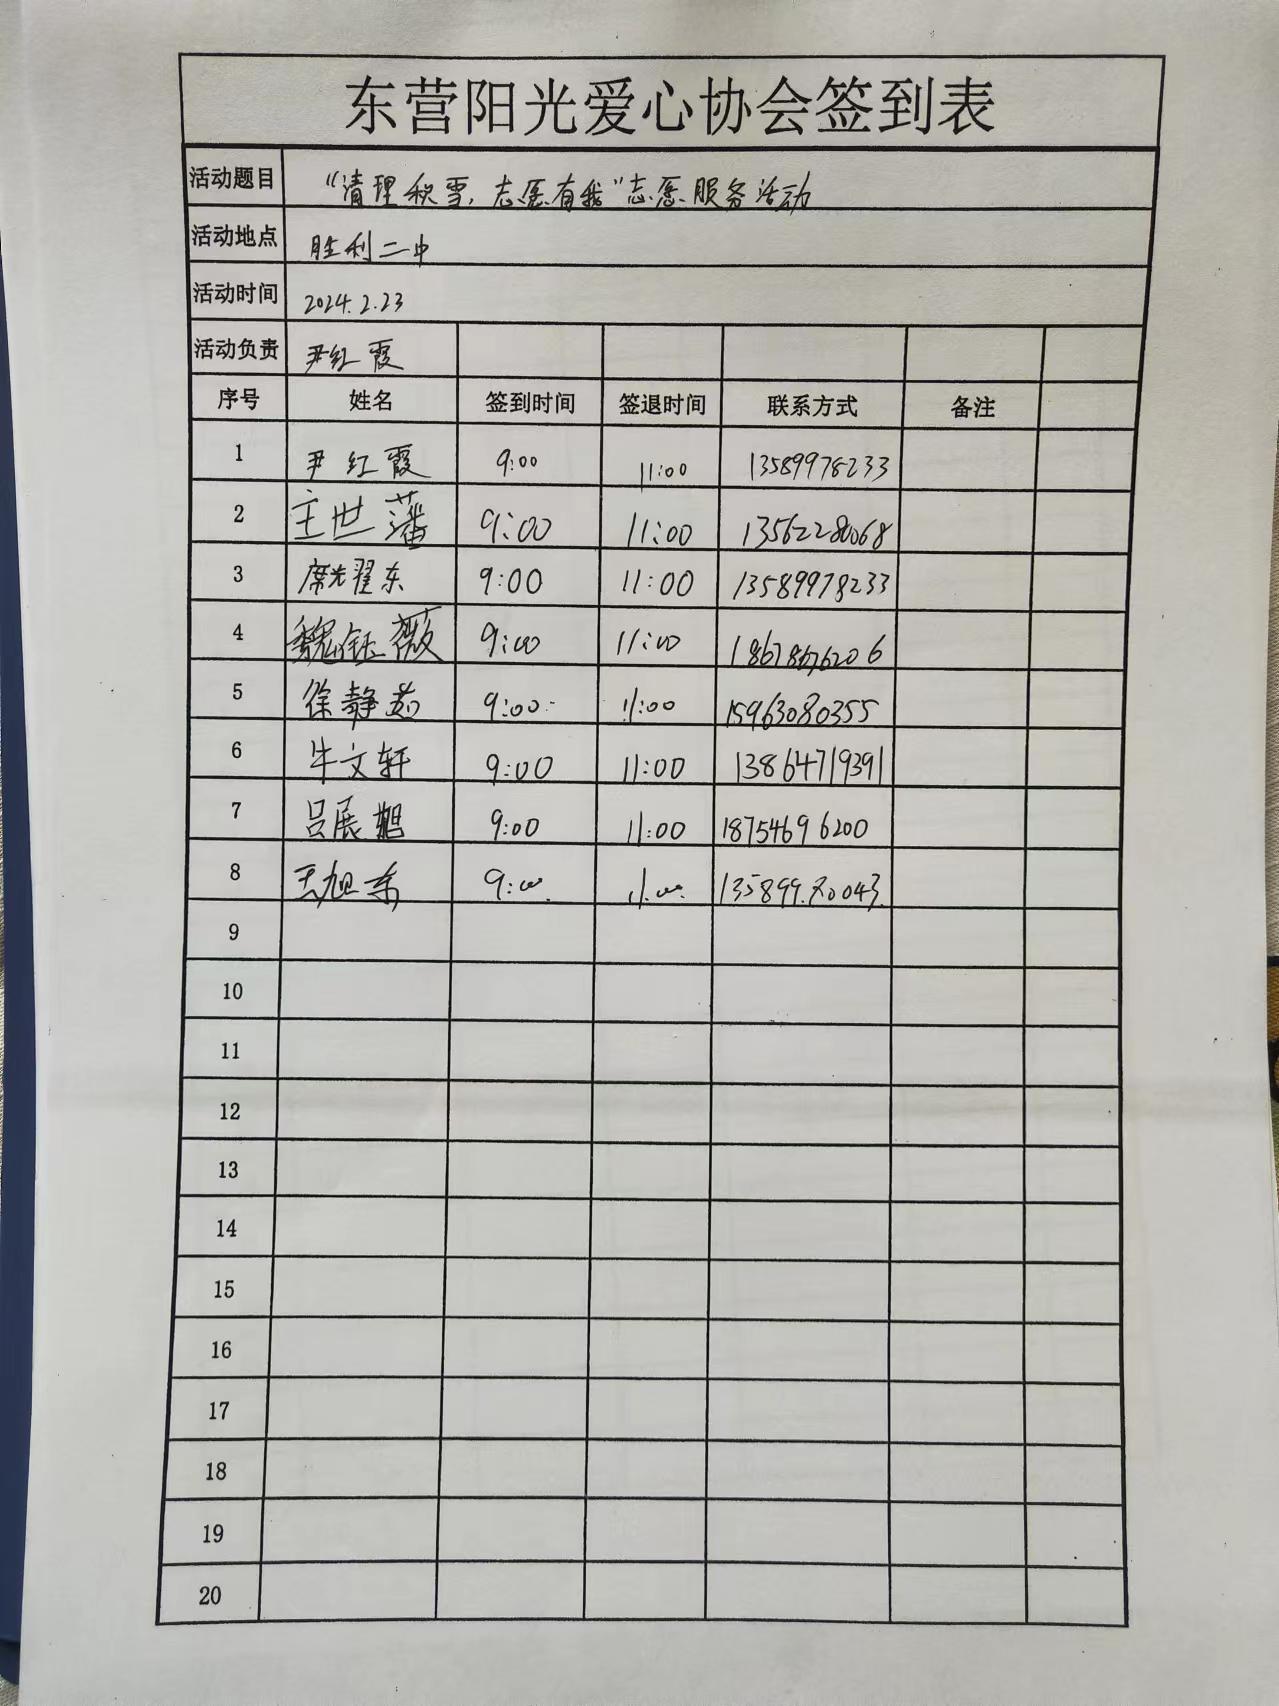 东营阳光爱心协会签到表
活动题目 “清理积雪,志愿有我”志愿服务活动
活动地点 胜利二中
活动时间 2024.2.23
活动负责 尹红霞
序号 姓名 签到时间 签退时间 联系方式 备注
1 尹红霞 9:00 11:00 13589978233
2 王世藩 9:00 11:00 13562280068
3 席光翟东 9:00 11:00 13589978233
4 魏钰薇 9:00 11:00 18678676206
5 徐静茹 9:00 11:00 15963080355
6 牛文轩 9:00 11:00 13864719391
7 吕展旭 9:00 11:00 18754696200
8 王旭东 9:00 11:00
9
10
11
12
13
14
15
16
17
18
19
20